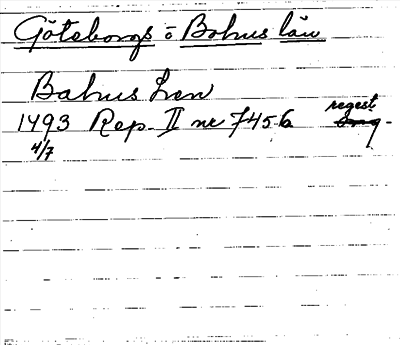 Göteborgs o Bohus län
Bahus Len
1493 Rep. II nr 7456 regest.
4/7